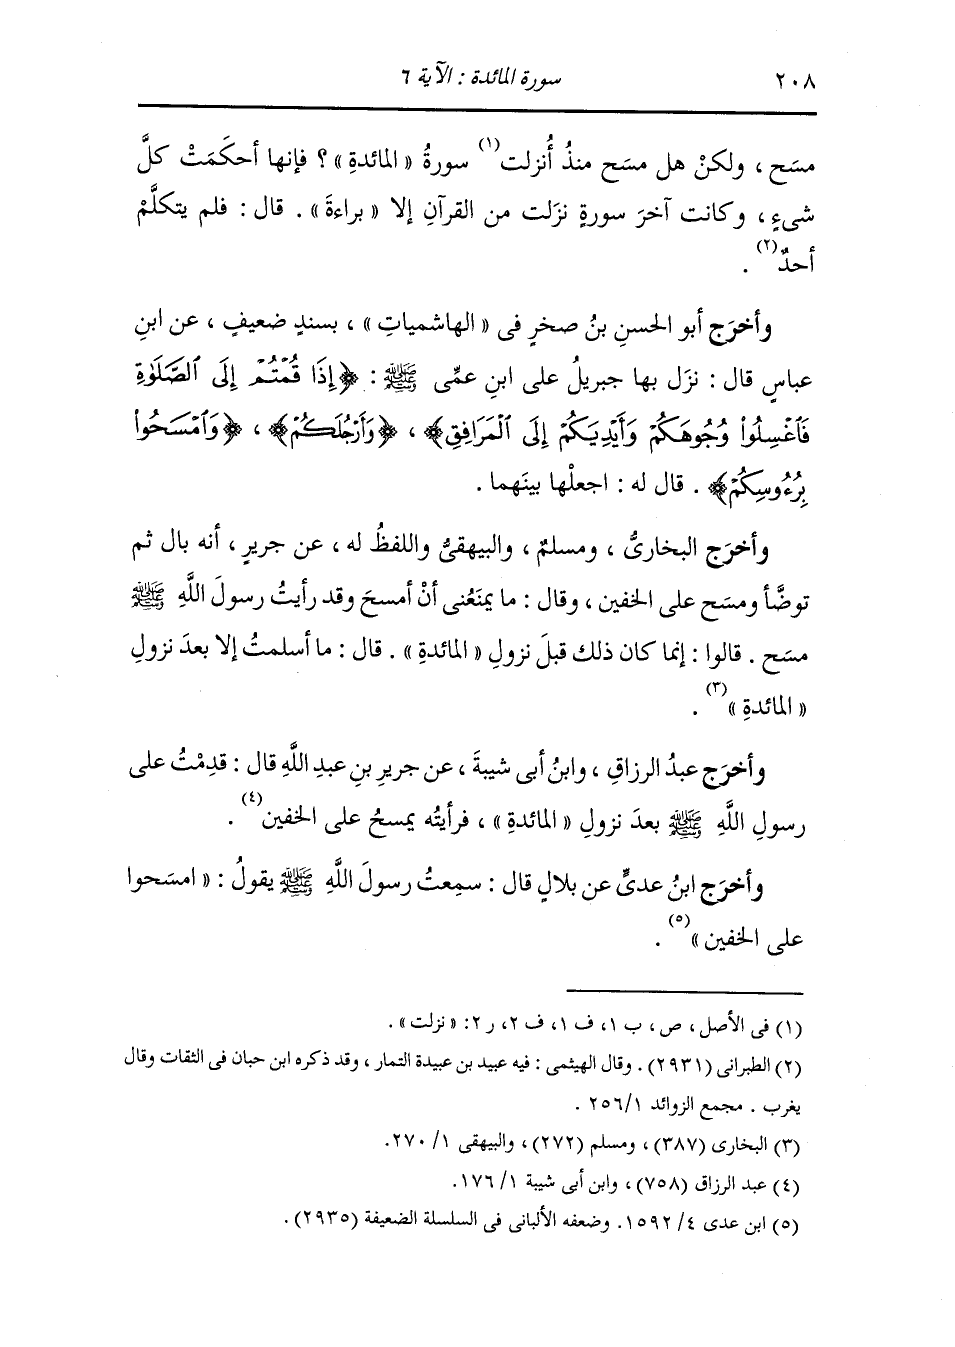 ٢٠٨ سورة المائدة : الآية ٦
مسَح ، ولكنْ هل مسَح منذُ أُنزلت(١) سورةُ « المائدةِ » ؟ فإنها أحكَمَتْ كلَّ
شىءٍ ، وكانت آخرَ سورةٍ نزَلت من القرآنِ إلا « براءةَ » . قال : فلم يتكلَّمْ
أحدٌ(٢) .
وأخرَج أبو الحسنِ بنُ صخرٍ فى « الهاشمياتِ » ، بسندٍ ضعيفٍ ، عن ابنِ
عباسٍ قال : نزَل بها جبريلُ على ابنِ عمِّى ﷺ : ﴿إِذَا قُمْتُمْ إِلَى ٱلصَّلَوٰةِ
فَٱغْسِلُواْ وُجُوهَكُمْ وَأَيْدِيَكُمْ إِلَى ٱلْمَرَافِقِ﴾ ، ﴿وَأَرْجُلَكُمْ﴾ ، ﴿وَٱمْسَحُواْ
بِرُءُوسِكُمْ﴾ . قال له : اجعلْها بينَهما .
وأخرَج البخارىُّ ، ومسلمٌ ، والبيهقىُّ واللفظُ له ، عن جريرٍ ، أنه بال ثم
توضَّأ ومسَح على الخفين ، وقال : ما يمنَعُنى أنْ أمسحَ وقد رأيتُ رسولَ اللَّهِ ﷺ
مسَح . قالوا : إنما كان ذلك قبلَ نزولِ « المائدةِ » . قال : ما أسلمتُ إلا بعدَ نزولِ
« المائدةِ »(٣) .
وأخرَج عبدُ الرزاقِ ، وابنُ أبى شيبةَ ، عن جريرِ بنِ عبدِ اللَّهِ قال : قدِمْتُ على
رسولِ اللَّهِ ﷺ بعدَ نزولِ « المائدةِ » ، فرأيتُه يمسحُ على الخفين(٤) .
وأخرَج ابنُ عدىٍّ عن بلالٍ قال : سمِعتُ رسولَ اللَّهِ ﷺ يقولُ : « امسَحوا
على الخفين »(٥) .
(١) فى الأصل ، ص ، ب ١ ، ف ١ ، ف ٢ ، ر ٢ : « نزلت » .
(٢) الطبرانى (٢٩٣١) . وقال الهيثمى : فيه عبيد بن عبيدة التمار ، وقد ذكره ابن حبان فى الثقات وقال
يغرب . مجمع الزوائد ٢٥٦/١ .
(٣) البخارى (٣٨٧) ، ومسلم (٢٧٢) ، والبيهقى ١/ ٢٧٠.
(٤) عبد الرزاق (٧٥٨) ، وابن أبى شيبة ١/ ١٧٦.
(٥) ابن عدى ٤/ ١٥٩٢. وضعفه الألبانى فى السلسلة الضعيفة (٢٩٣٥) .